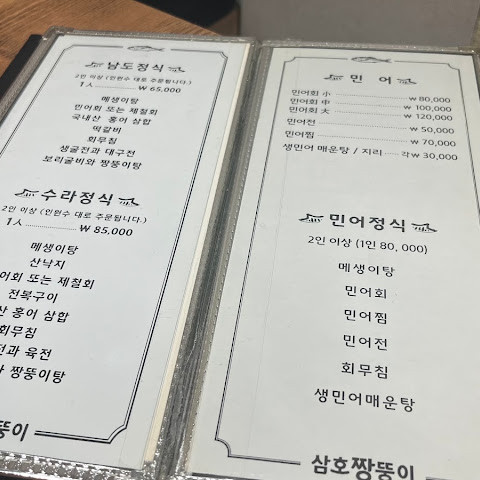 남도정식
2인 이상 (인원수 대로 주문됩니다.)
1人 ₩ 65,000
매생이탕
민어회 또는 제철회
국내산 홍어 삼합
떡갈비
회무침
생굴전과 대구전
보리굴비와 짱뚱이탕
수라정식
2인 이상 (인원수 대로 주문됩니다.)
1人 ₩ 85,000
매생이탕
산낙지
어회 또는 제철회
전복구이
산 홍어 삼합
회무침
전과 육전
짱뚱이탕
뚱이
민 어
민어회 小 ₩ 80,000
민어회 中 ₩ 100,000
민어회 大 ₩ 120,000
민어전 ₩ 50,000
민어찜 ₩ 70,000
생민어 매운탕 / 지리 각 ₩ 30,000
민어정식
2인 이상 (1인 80,000)
매생이탕
민어회
민어찜
민어전
회무침
생민어매운탕
삼호짱뚱이